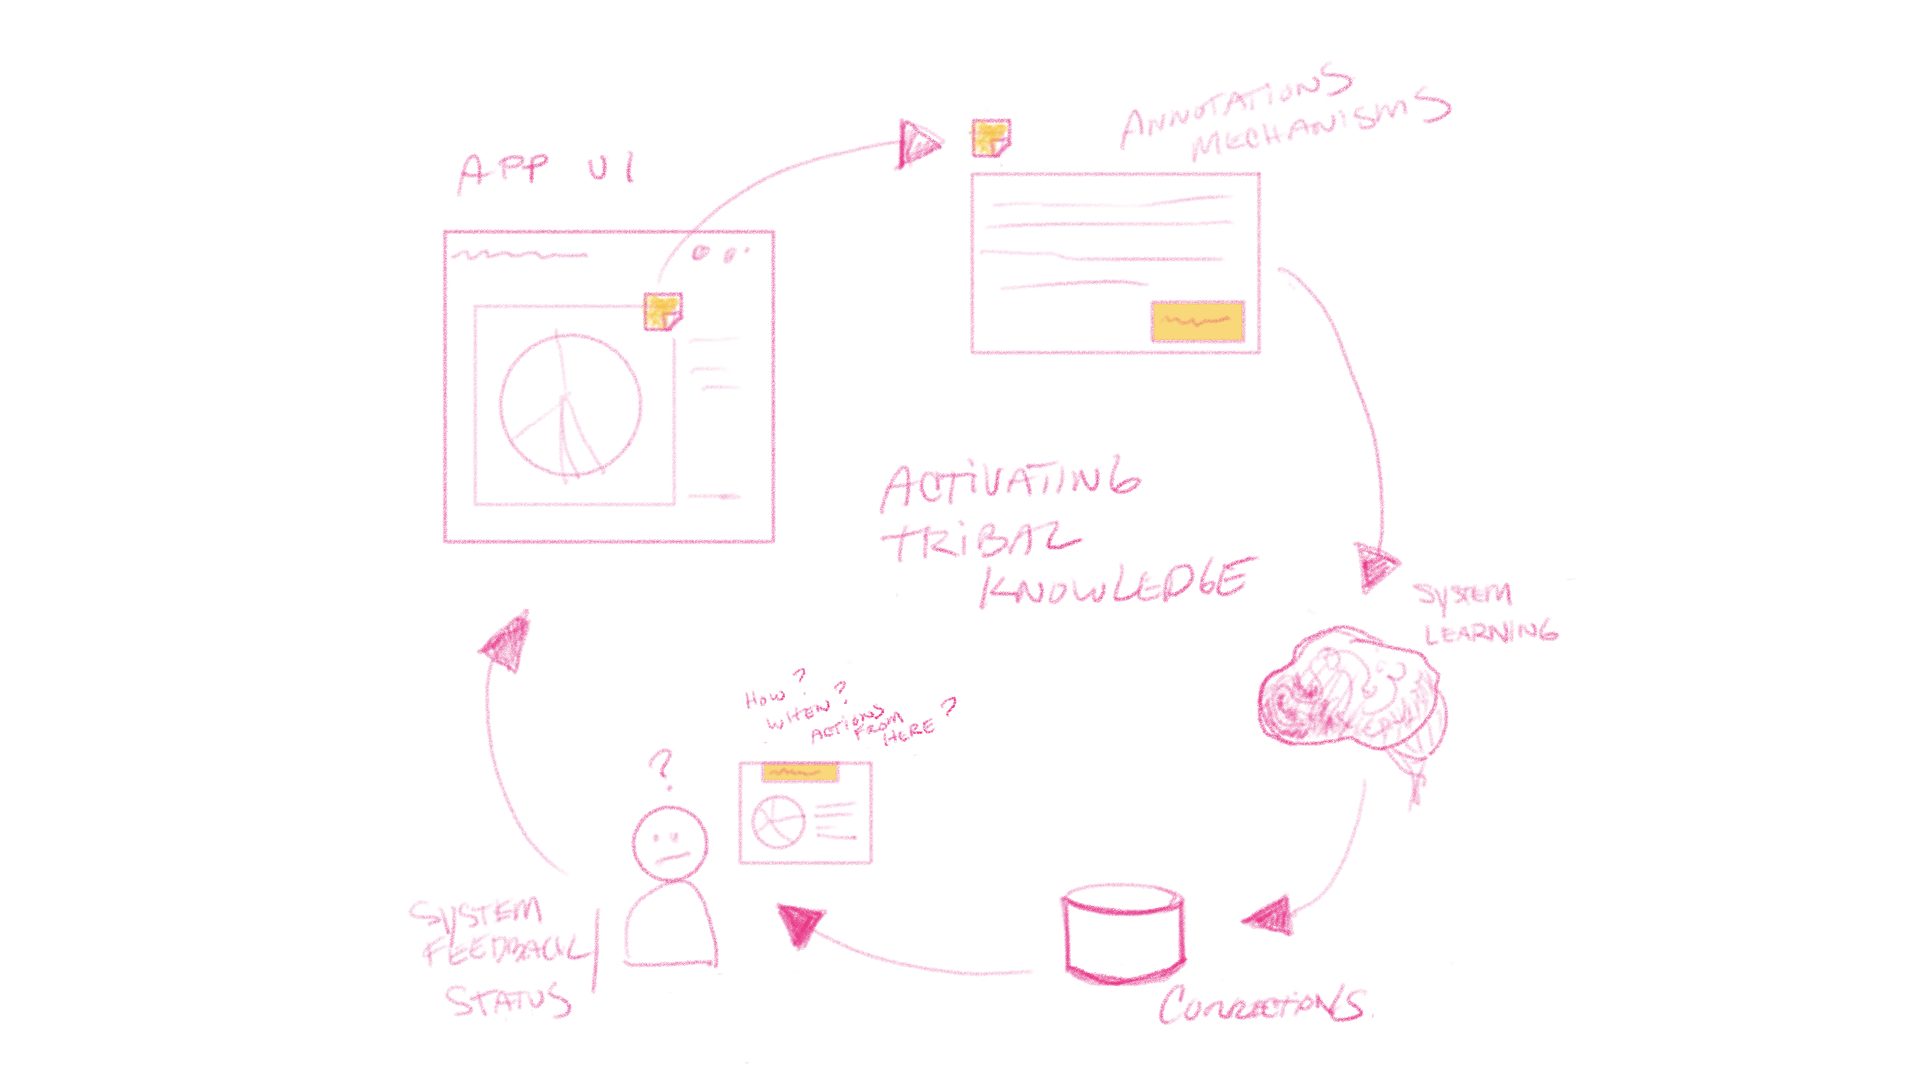 APP UI
ANNOTATIONS
MECHANISMS
ACTIVATING
TRIBAL
KNOWLEDGE
SYSTEM
LEARNING
HOW?
WHEN?
ACTIONS
FROM
HERE?
?
SYSTEM
FEEDBACK/
STATUS
CORRECTIONS.